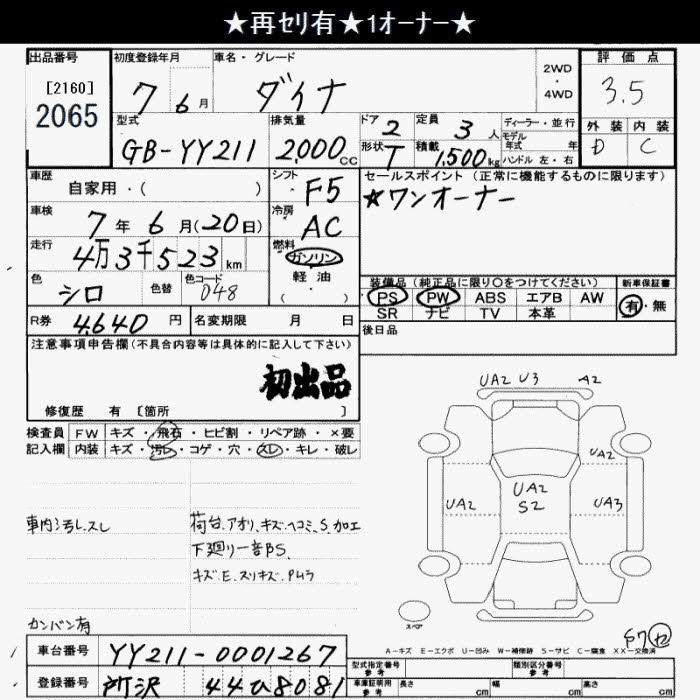 ★再セリ有★1オーナー★
出品番号 初度登録年月 車名・グレード 2WD・4WD 評価点
[2160]
2065
7 6月 ダイナ 3.5
型式 排気量 ドア 2 定員 3人 ディーラー・並行
モデル年式 年
外装 内装
GB-YY211 2000cc 形状 T 積載 1,500kg ハンドル 左・右 D C
車歴 シフト F5 セールスポイント (正常に機能するものに限ります)
自家用・( ) ★ワンオーナー
車検 冷房 AC
7年6月(20日)
走行 燃料
4万3千523km ガソリン
軽油
( )
色 シロ 色替 色コード 048
装備品(純正品に限り○をつけてください) 新車保証書
PS PW ABS エアB AW 有・無
SR ナビ TV 本革
R券 4,640円 名変期限 月 日 後日品
注意事項申告欄(不具合内容等は具体的に記入して下さい)
初出品
修復歴 有 [箇所 ]
検査員 FW キズ・飛石・ヒビ割・リペア跡・×要
記入欄 内装 キズ・汚レ・コゲ・穴・スレ・キレ・破レ
UA2 U3 A2
UA2
UA2 UA2 UA3
S2
車内汚レ.スレ 荷台.アオリ.キズ.ヘコミ.S.加工
下廻り一音BS.
カンバン有
スペア
A-キズ E-エクボ U-凹み W-補修跡 S-サビ C-腐食 XX-交換済
車台番号 YY211-0001267
登録番号 所沢 44ひ8081
型式指定番号 参考 類別区分番号 参考
車庫証明用 参考 長さ cm 幅 cm 高さ cm